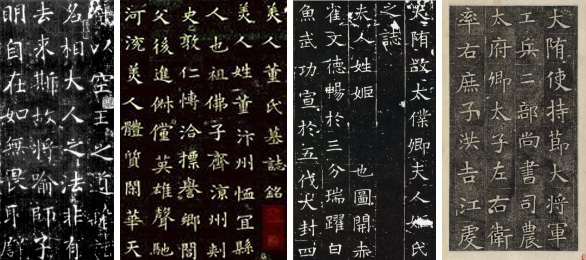 以空王之道
名相大人之法非有
去來斯故將喻師子
明自在如無畏取譬
美人董氏墓誌銘
美人姓董汴州恤宜縣
人也祖佛子齊涼州刺
史敦仁博洽標譽鄉閭
父後進俶儻英雄聲馳
河渷美人體質閑華天
大隋故太僕卿夫人姬氏
之誌
夫人姓姬 也圖開赤
雀文德暢於三分瑞躍白
魚武功宣於五伐大封四
大隋使持節大將軍
工兵二部尚書司農
太府卿太子左右衛
率右庶子洪吉江虔